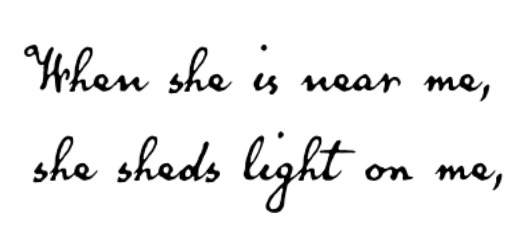 When she is near me,
she sheds light on me,